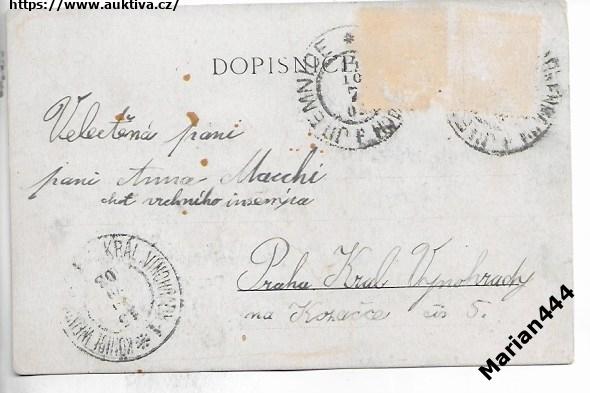 https://www.auktiva.cz/
DOPISNICE
JILEMNICE
Velectěná paní
paní Anna Macchi
chot vrchního inženýra
KRÁL. VINOHRADY
Praha Král Vynohrady
na Kozačce čís 5.
Marian444